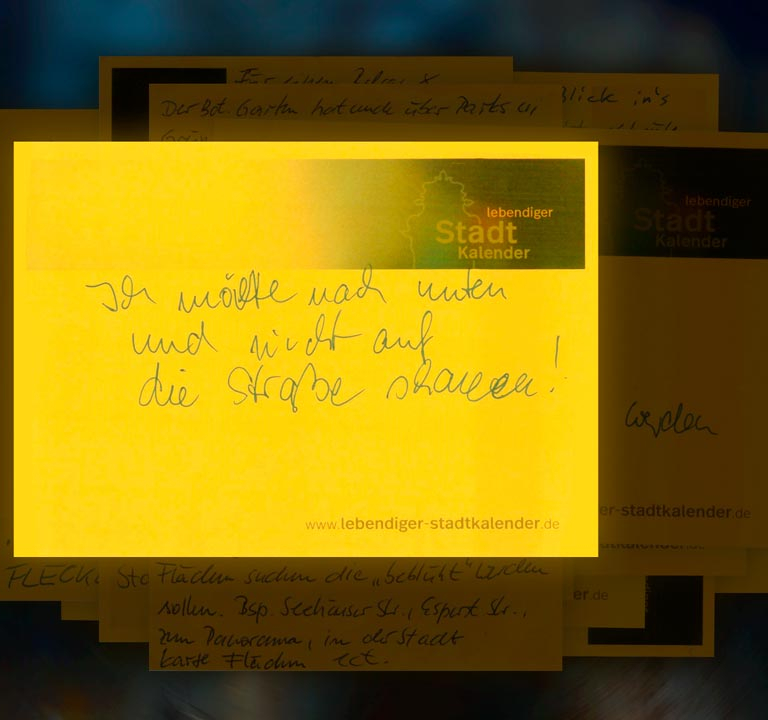 Der Bot. Garten hat auch über
Blick in's
lebendiger
Stadt
Kalender
lebendiger
Stadt
Kalender
Ich möchte nach unten
und nicht auf
die Straße schauen!
werden
www.lebendiger-stadtkalender.de
er-stadtkalender.de
Flächen suchen die „beblüht" werden
sollen. Bsp. Str., Str.,
zum Panorama, in der Stadt
karge Flächen ect.
er.de